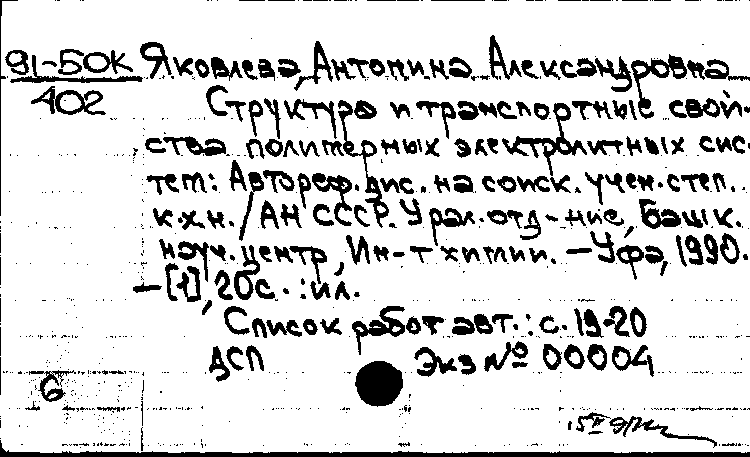 91-50К
402
Яковлева, Антонина Александровна
Структура и транспортные свой-
ства полимерных электролитных сис-
тем: Автореф. дис. на соиск. учен. степ.
к.х.н. / АН СССР. Урал. отд-ние, Башк.
науч. центр, Ин-т химии. – Уфа, 1990.
– [1], 20с. : ил.
Список работ авт.: с. 19-20
ДСП Экз № 00004
6